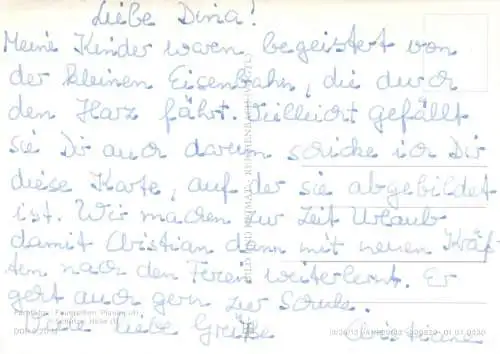 Liebe Dina!
Meine Kinder waren begeistert von
der kleinen Eisenbahn, die durch
den Harz fährt. Vielleicht gefällt
sie Dir auch darum schicke ich Dir
diese Karte, auf der sie abgebildet
ist. Wir machen zur Zeit Urlaub
damit Christian dann mit neuen Kräf-
ten nach den Ferien weiterlernt. Er
geht auch gern zur Schule.
Viele liebe Grüße Christiane